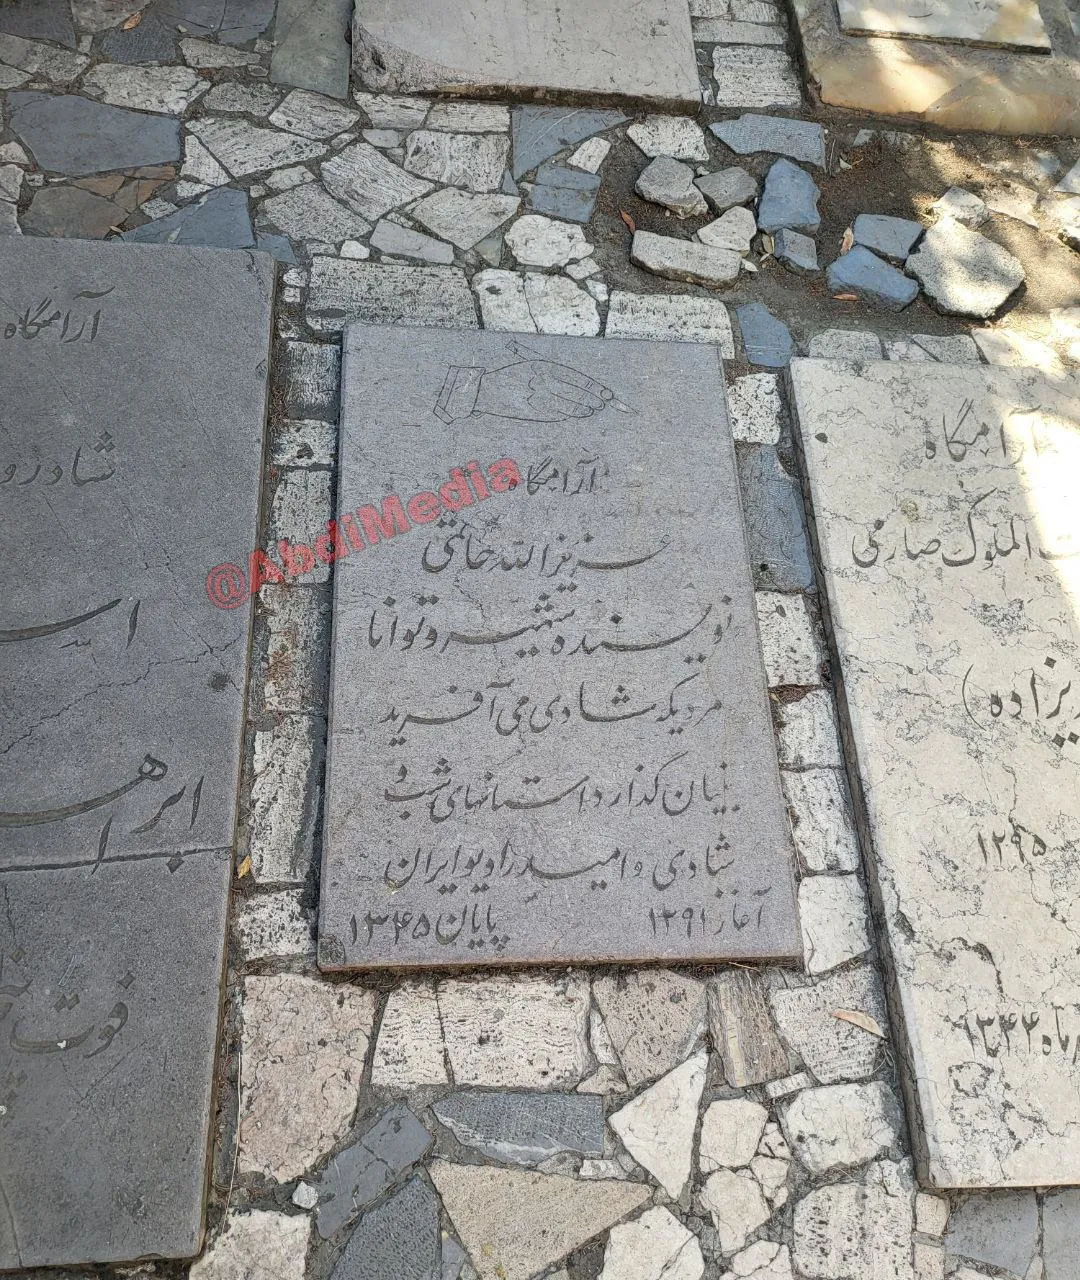 آرامگاه
عزیزالله حاتمی
نویسنده شهیر و توانا
مردیکه شادی می آفرید
بنیان گذار داستانهای شب و
شادی و امید رادیو ایران
آغاز ۱۲۹۱ پایان ۱۳۴۵
@AbdiMedia
آرامگاه
شادرو
ابراه
فوت
آرامگاه
الملوک صارمی
یرزاده)
۱۲۹۵
ماه ۱۳۴۲